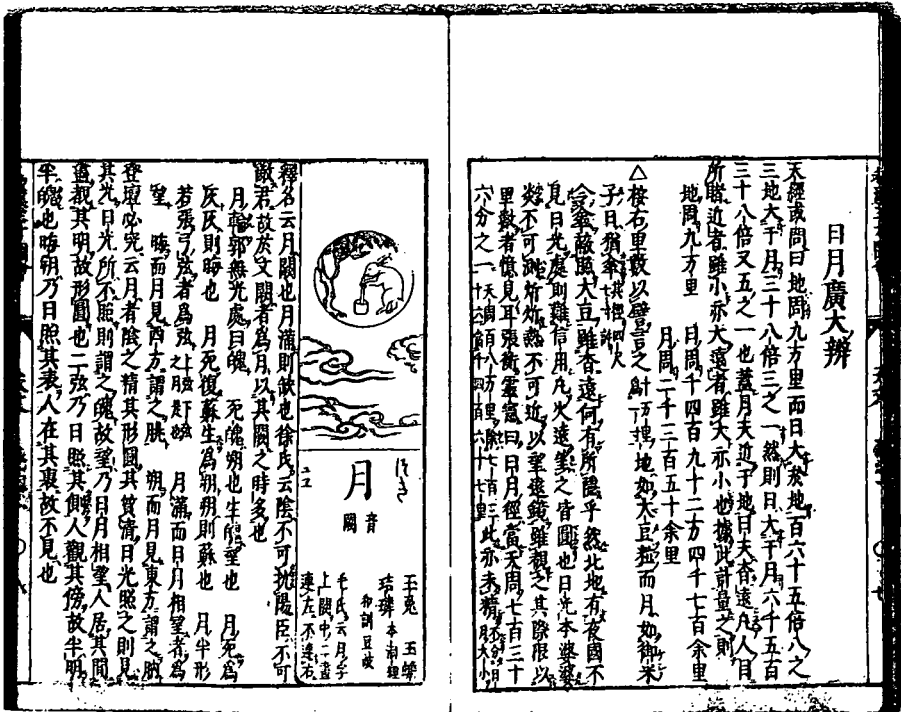 日月廣大辨
天經或問曰地周九万里而日大於地百六十五倍八之
三地大于月三十八倍三之一然則日大于月六千五百
三十八倍又五之一也蓋月天近于地日天杳遠凡人目
所睹近者雖小亦大遠者雖大亦小也據此計量之則
地周九万里 日周千四百九十二万四千七百余里
月周二千三百五十余里
△按右里數以譬言之計 地如大豆粒而月如御米
子日猶傘
合傘蔽照大豆雖杳遠何有所隱乎然此地有夜國不
見日光處則難信用凡火遠望之皆圓也日光本
炎不可測炘炘熱不可近以望遠鏡雖觀之其際限以
里數者億見耳張衡靈憲曰日月徑當天周七百三十
六分之一
月
音闕
玉兎 玉蟾
和訓豆岐
釋名云月闕也月滿則缺也徐氏云陰不可抗陽臣不可
敵君故於文闕者爲月以其闕之時多也
月輪郭無光處曰魄 死魄朔也生魄望也 月死爲
灰灰則晦也 月死復蘇生爲朔朔則蘇也 月半形
若張弓弦者爲弦 月滿而日月相望者爲
望 晦而月見西方謂之朓 朔而月見東方謂之朒
登壇必究云月者陰之精其形圓其質清日光照之則見
其光日光所不照則謂之魄故望乃日月相望人居其間
盡觀其明故形圓也二弦乃日照其側人觀其傍故半明
半魄也晦朔乃日照其表人在其裏故不見也